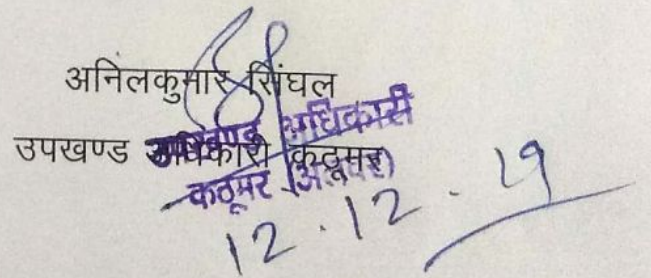 अनिलकुमार सिंघल
उपखण्ड अधिकारी कठूमर
उपखण्ड अधिकारी
कठूमर (अलवर)
12.12.19